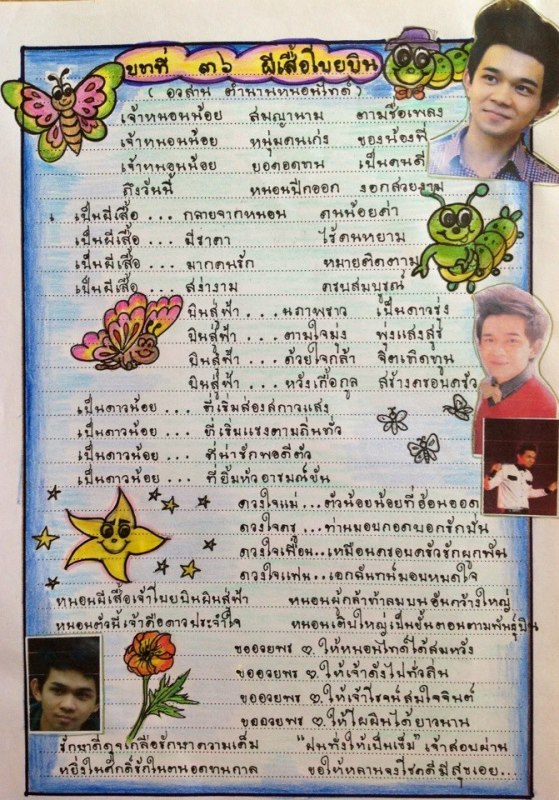 บทที่ ๓๖ ผีเสื้อโบยบิน
( อวสาน ตำนานหนอนไกด์ )
เจ้าหนอนน้อย สมญานาม ตามชื่อเพลง
เจ้าหนอนน้อย หนุ่มคนเก่ง ของน้องพี่
เจ้าหนอนน้อย ยอดอดทน เป็นคนดี
ถึงวันนี้ หนอนปีกออก งอกสวยงาม
เป็นผีเสื้อ ... กลายจากหนอน คนน้อยค่า
เป็นผีเสื้อ ... มีราคา ใช่คนหยาม
เป็นผีเสื้อ ... มากคนรัก หมายติดตาม
เป็นผีเสื้อ ... สง่างาม ครบสมบูรณ์
บินสู่ฟ้า ... นภาพราว เป็นดาวรุ่ง
บินสู่ฟ้า ... ตามใจมุ่ง พุ่งแสงสูรย์
บินสู่ฟ้า ... ด้วยใจกล้า จิตเทิดทูน
บินสู่ฟ้า ... หวังเกื้อกูล สร้างครอบครัว
เป็นดาวน้อย ... ที่เริ่มส่องสกาวแสง
เป็นดาวน้อย ... ที่เริ่มแรงตามถิ่นทั่ว
เป็นดาวน้อย ... ที่น่ารักพอดีตัว
เป็นดาวน้อย ... ที่ยิ้มหัวอารมณ์ขัน
ดวงใจแม่ ... ตัวน้อยน้อยที่อ้อนออด
ดวงใจครู ... ท่านมอบกอดบอกรักมั่น
ดวงใจเพื่อน.. เหมือนครอบครัวรักผูกพัน
ดวงใจแฟน.. เอกฉันท์มอบหมดใจ
หนอนผีเสื้อเจ้าโบยบินผินสู่ฟ้า หนอนผู้กล้าท้าลมบนอันกว้างใหญ่
หนอนตัวนี้เจ้าคือดาวประจำใจ หนอนเติบใหญ่เป็นขั้นตอนตามพันธุ์บิน
ขออวยพร ♡ ให้หนอนไกด์ได้สมหวัง
ขออวยพร ♡ ให้เจ้าดังไปทั่วถิ่น
ขออวยพร ♡ ให้เจ้าโรจน์สมใจจินต์
ขออวยพร ♡ ให้โผผินได้ยาวนาน
รักษาดีดุจเกลือรักษาความเค็ม "ฝนทั่งให้เป็นเข็ม" เจ้าสอบผ่าน
หยิ่งในศักดิ์รักในตนอดทนกาล ขอให้หลานจงโชคดีมีสุขเอย...